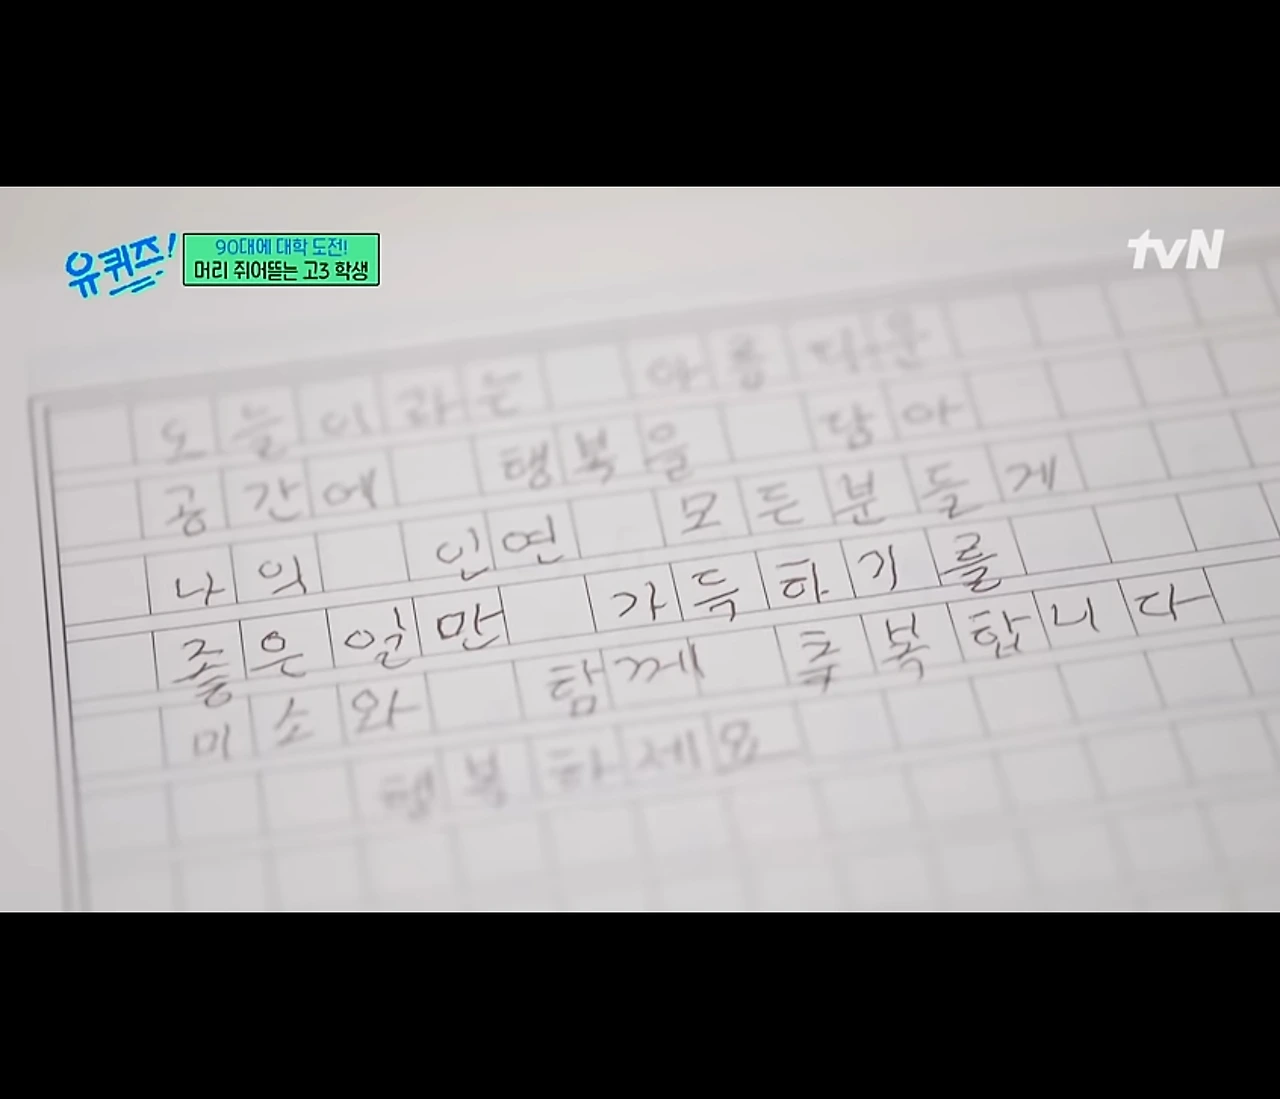 유퀴즈!
90대에 대학 도전!
머리 쥐어뜯는 고3 학생
tvN
오늘이라는 아름다운
공간에 행복을 담아
나의 인연 모든분들게
좋은일만 가득하기를
미소와 함께 축복합니다
행복하세요